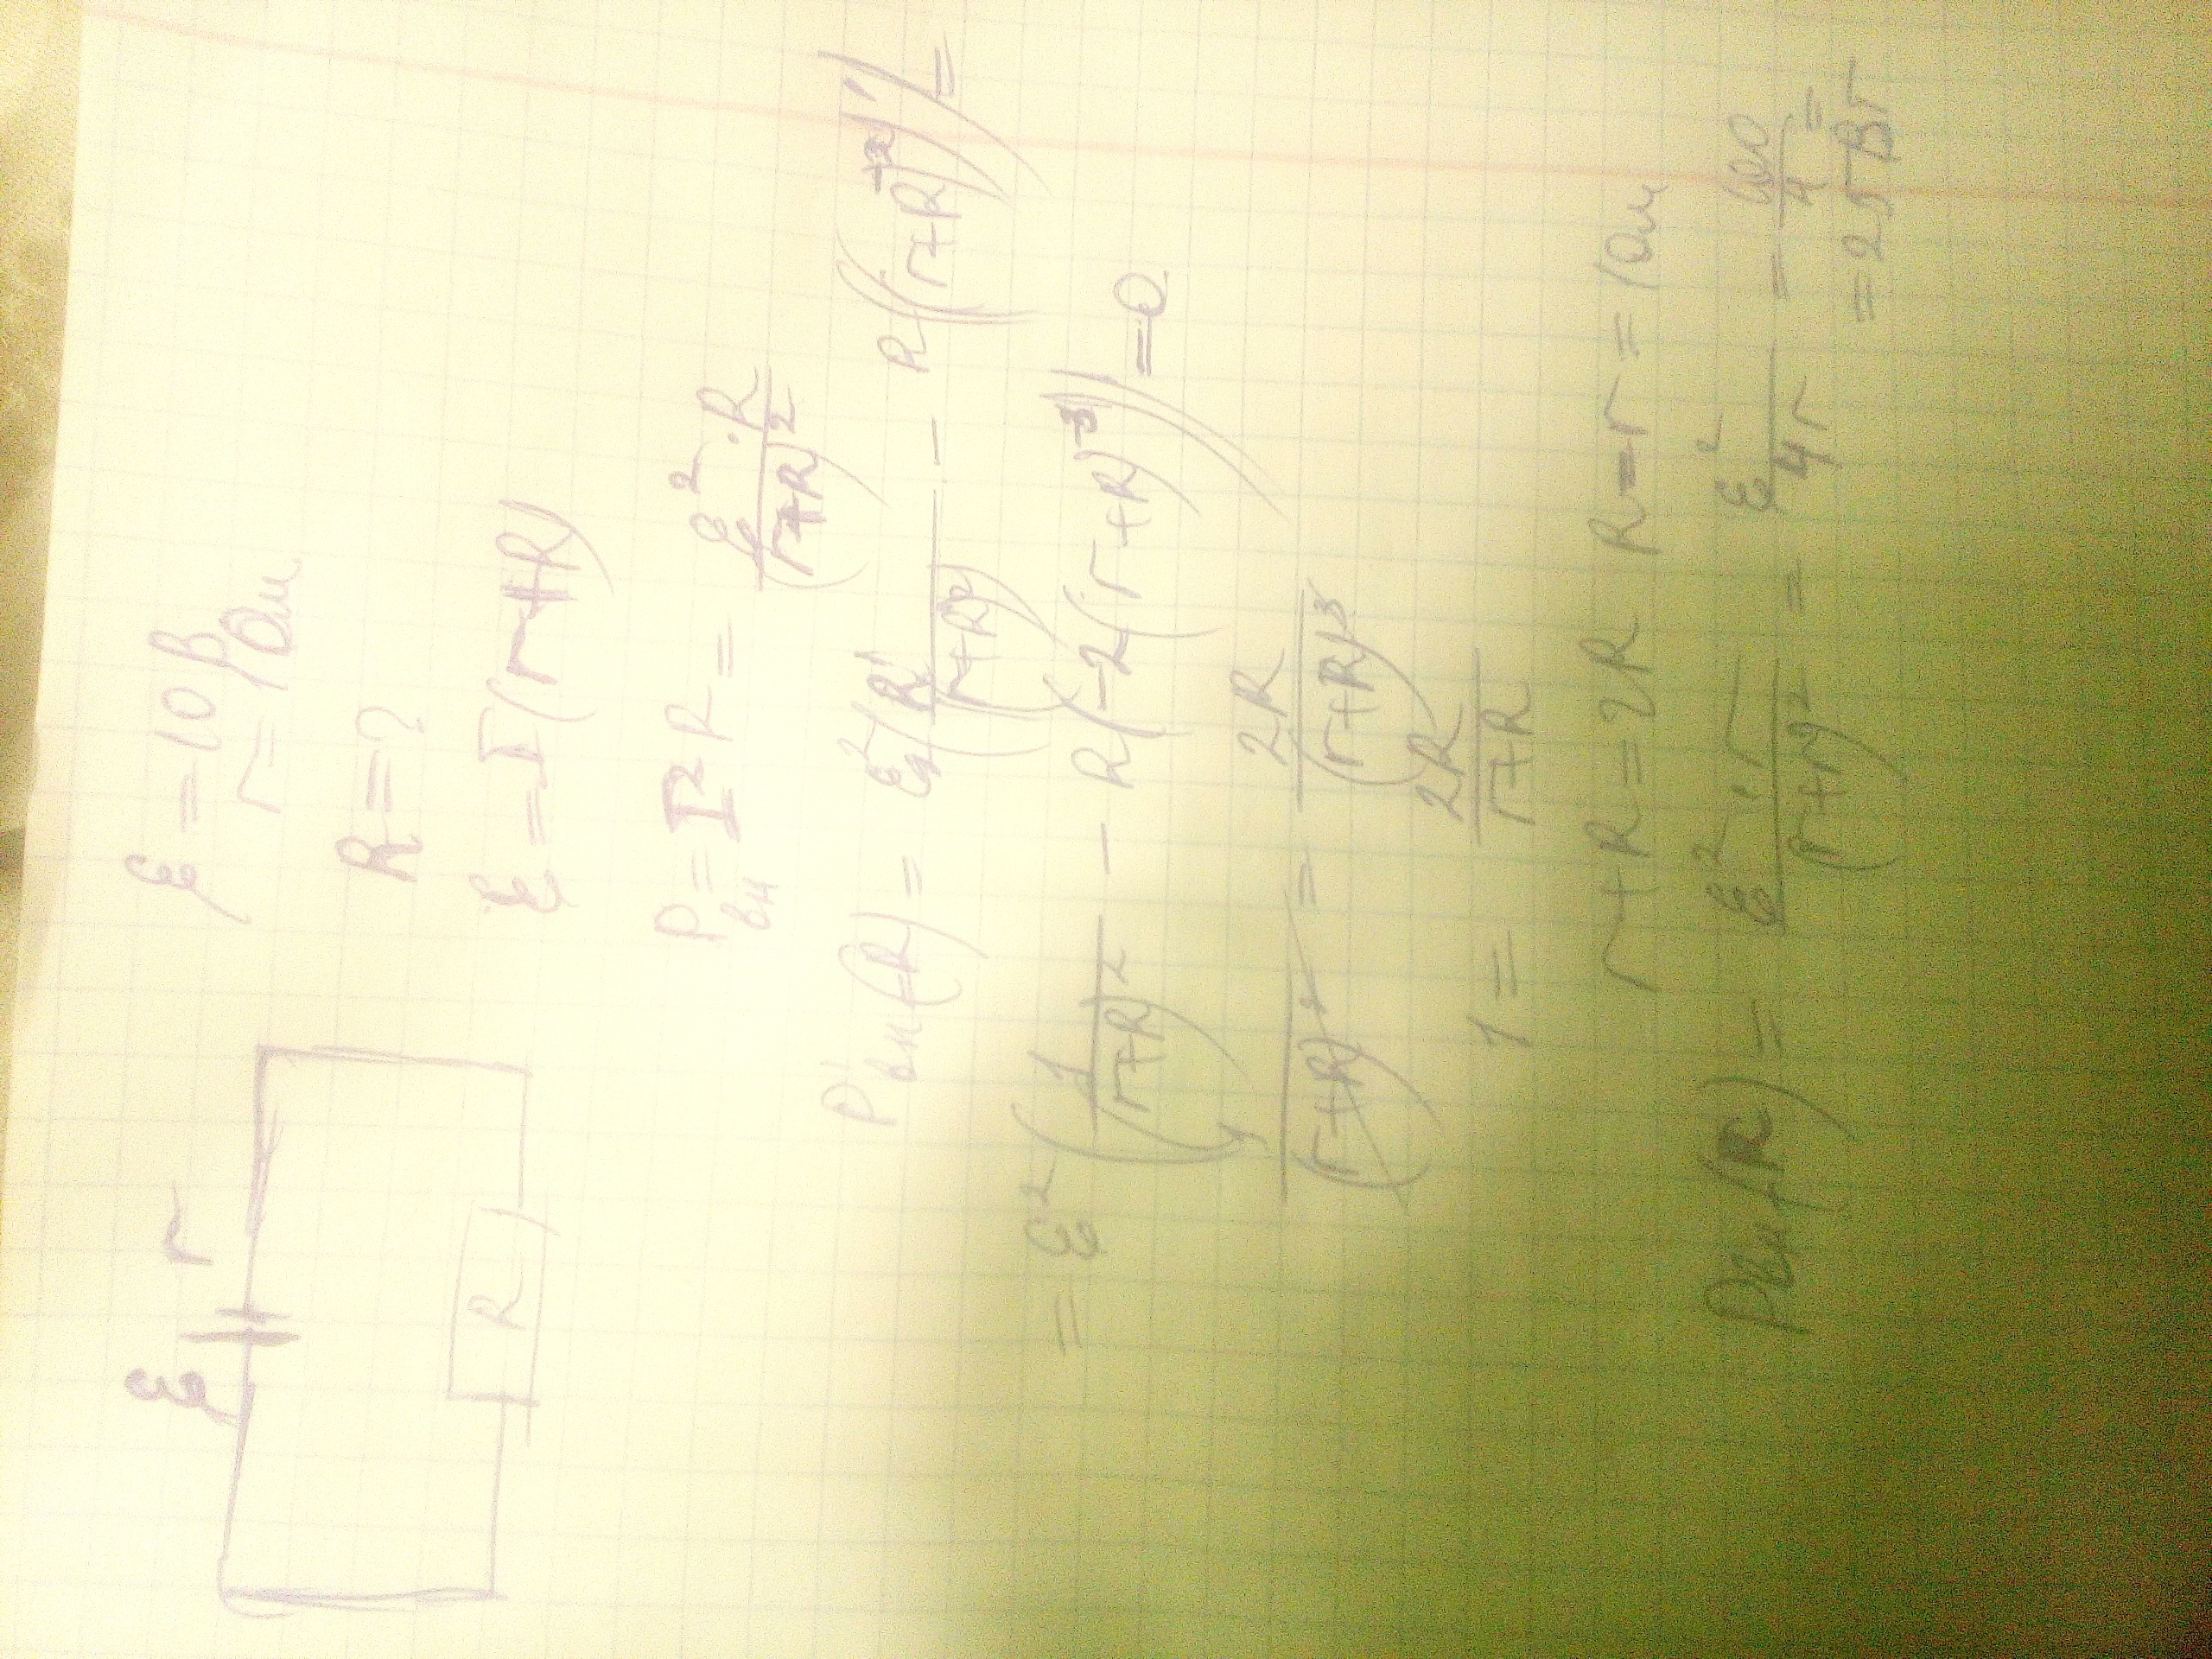 ℰ r
R
ℰ = 10 В
r = 1 Ом
R = ?
ℰ = I(r+R)
Pвн = I²R = ℰ²·R/(r+R)²
P'вн(R) = ℰ²(R'/(r+R)² - R((r+R)⁻²)') =
= ℰ²(1/(r+R)² - R(-2(r+R)⁻³)) = 0
1/(r+R)² = 2R/(r+R)³
1 = 2R/(r+R)
r+R = 2R R = r = 1 Ом
Pвн(R) = ℰ²·r/(r+r)² = ℰ²/4r = 100/4 =
= 25 Вт